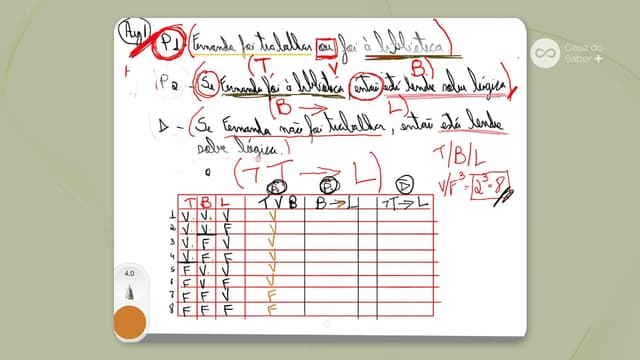 Arg1
P1 (Fernanda foi trabalhar ou foi à biblioteca)
T V B
P2 - (Se Fernanda foi à biblioteca então está lendo sobre lógica)
(B → L)
D - (Se Fernanda não foi trabalhar, então está lendo
sobre lógica.)
(¬T → L)
T/B/L
V/F³ = 2³ = 8
Casa do
Saber +
D
T B L T V B B → L ¬T → L
1 V V V V
2 V V F V
3 V F V V
4 V F F V
5 F V V V
6 F V F V
7 F F V F
8 F F F F
4.0